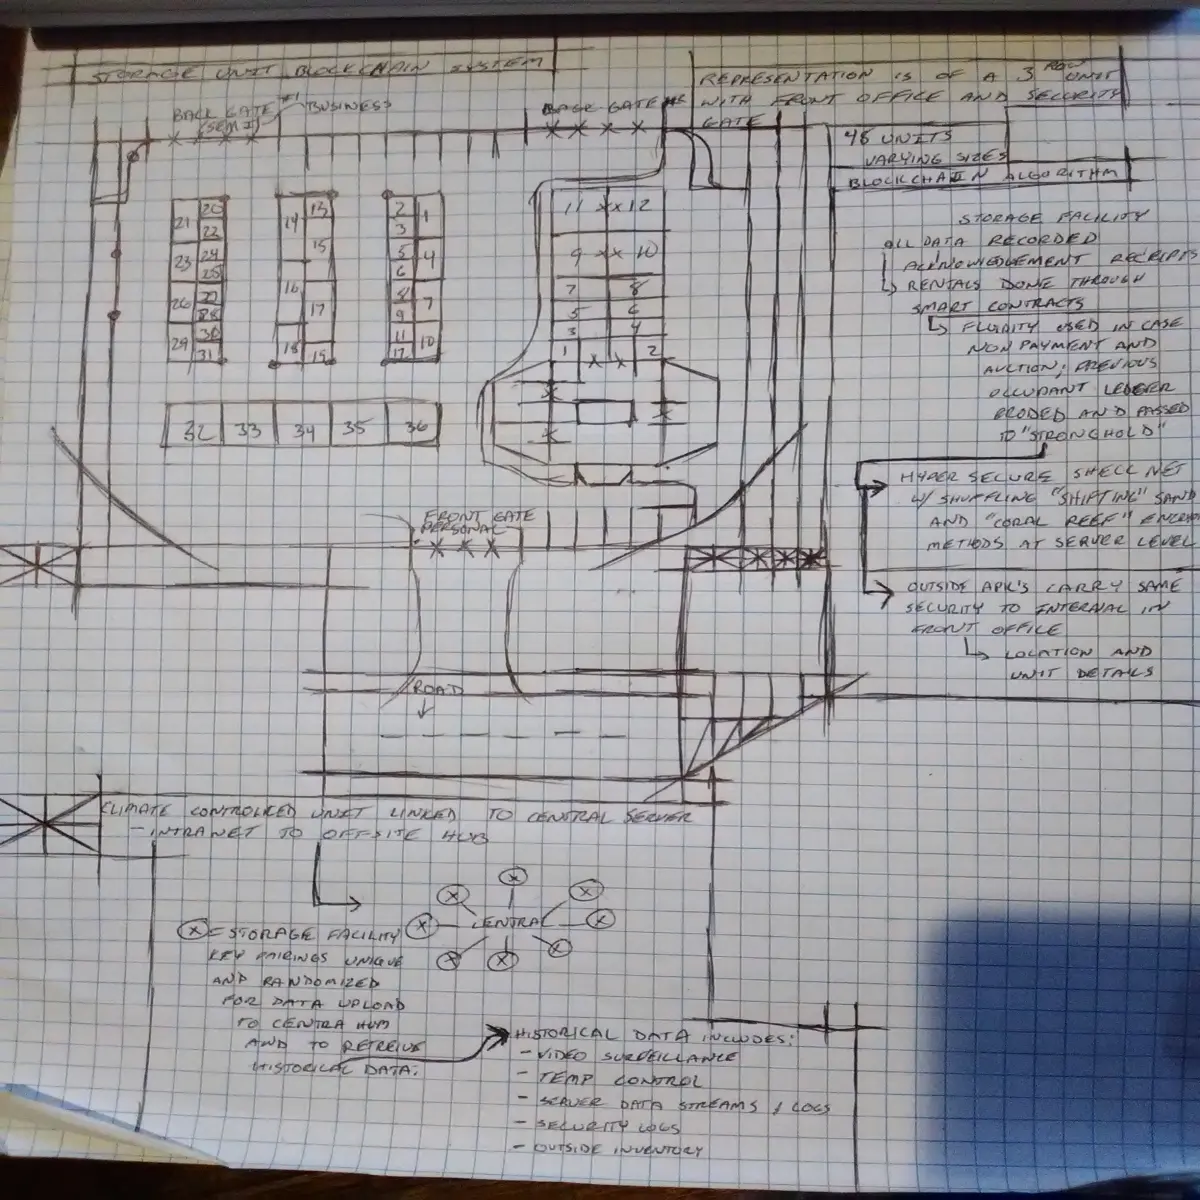 STORAGE UNIT BLOCKCHAIN SYSTEM
REPRESENTATION IS OF A 3 ROW UNIT
WITH FRONT OFFICE AND SECURITY
GATE
BACK GATE #1
(SEMI)
BUSINESS
BACK GATE
48 UNITS
VARYING SIZES
BLOCKCHAIN ALGORITHM
STORAGE FACILITY
ALL DATA RECORDED
ACKNOWLEDGEMENT RECEIPTS
RENTALS DONE THROUGH
SMART CONTRACTS
FLUIDITY USED IN CASE
NON PAYMENT AND
AUCTION; PREVIOUS
OCCUPANT LEDGER
ERODED AND PASSED
TO "STRONGHOLD"
HYPER SECURE SHELL NET
W/ SHUFFLING "SHIFTING" SAND
AND "CORAL REEF"
METHODS AT SERVER LEVEL
OUTSIDE APK'S CARRY SAME
SECURITY TO INTERNAL IN
FRONT OFFICE
LOCATION AND
UNIT DETAILS
21 20
22
23 24
25
26 27
28
29 30
31
14 13
15
16
17
18 19
2 1
3
5 4
6
8 7
9
11 10
12
11 XX 12
9 XX 10
7 8
5 6
3 4
1 X X 2
32 33 34 35 36
FRONT GATE
PERSONAL
ROAD
CLIMATE CONTROLLED UNIT LINKED TO CENTRAL SERVER
- INTRANET TO OFFSITE HUB
CENTRAL
X = STORAGE FACILITY
KEY PAIRINGS UNIQUE
AND RANDOMIZED
FOR DATA UPLOAD
TO CENTRA HUB
AND TO RETREIVE
HISTORICAL DATA.
HISTORICAL DATA INCLUDES:
- VIDEO SURVEILLANCE
- TEMP CONTROL
- SERVER DATA STREAMS & LOGS
- SECURITY LOGS
- OUTSIDE INVENTORY